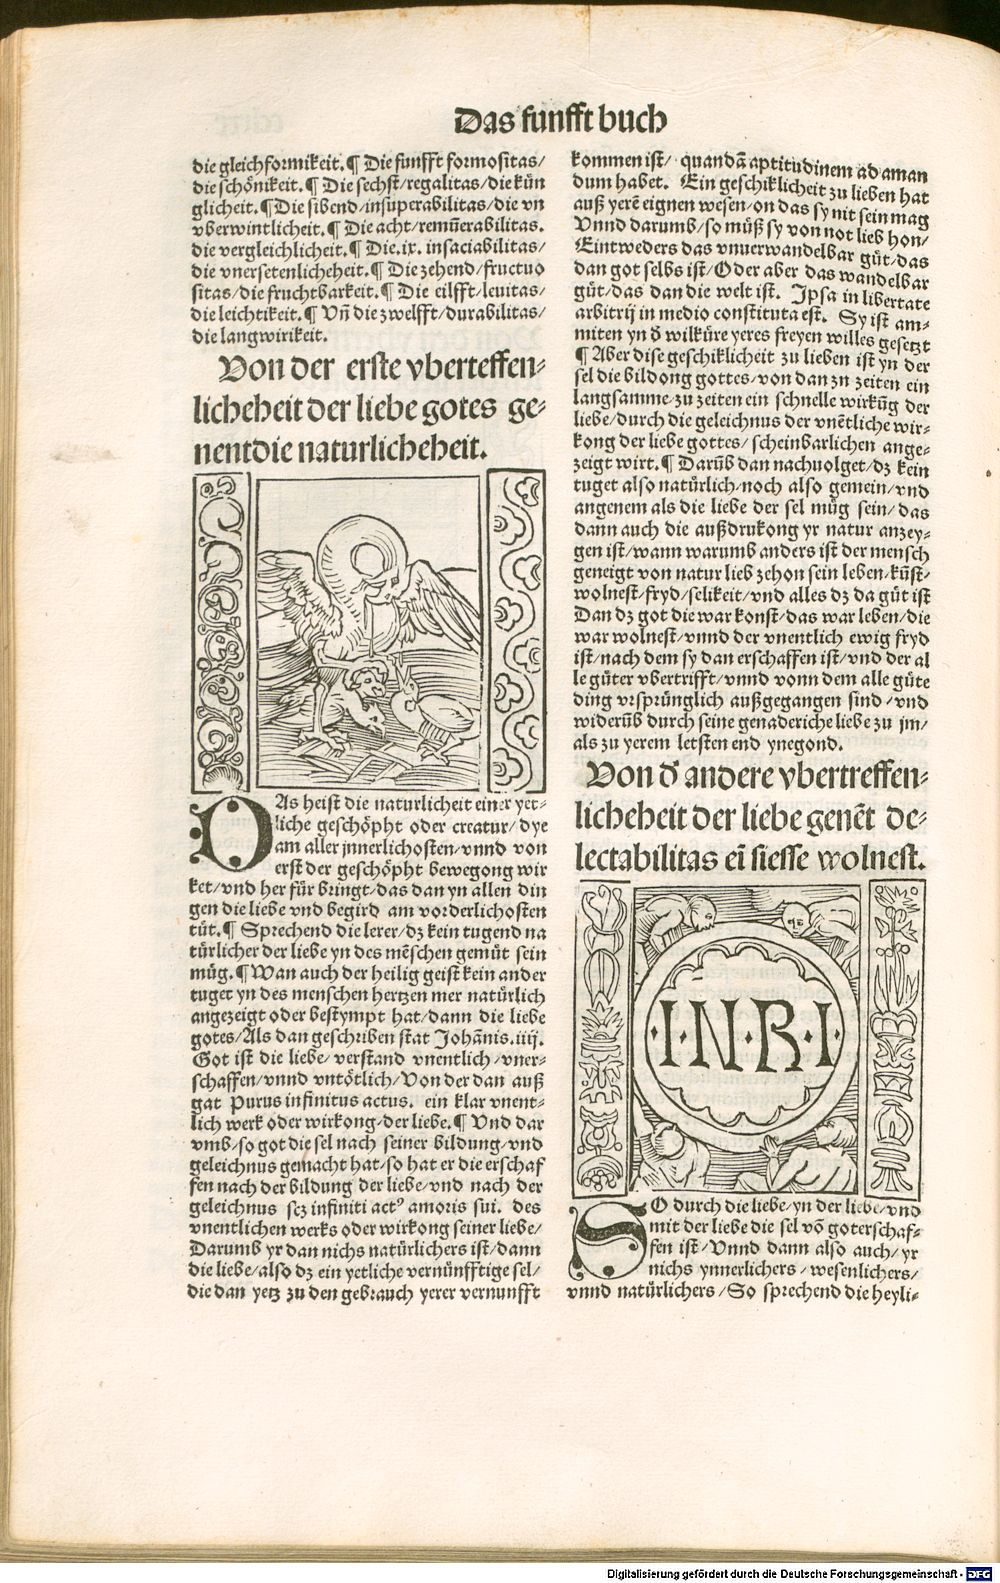 Das funfft buch
die gleichformikeit.¶ Die funfft formositas/
die schönikeit.¶ Die sechst/regalitas/die kün
glicheit.¶Die sibend/insuperabilitas/die vn
vberwintlicheit.¶ Die acht/remun̄erabilitas.
die vergleichlicheit.¶ Die.ix. insaciabilitas/
die vnersetenlicheheit.¶ Die zehend/fructuo
sitas/die fruchtbarkeit.¶ Die eilfft/leuitas/
die leichtikeit.¶ Vn̄ die zwelfft/durabilitas/
die langwirikeit.
Von der erste vberteffen⸗
licheheit der liebe gotes ge⸗
nentdie naturlicheheit.
DAs heist die naturlicheit einer yet⸗
liche geschöpht oder creatur/dye
am aller jnnerlichosten/vnnd von
erst der geschöpht bewegong wir
ket/vnd her für bringt/das dan yn allen din
gen die liebe vnd begird am vorderlichosten
tüt.¶ Sprechend die lerer/dz kein tugend na
türlicher der liebe yn des mēschen gemüt sein
müg.¶ Wan auch der heilig geist kein ander
tuget yn des menschen hertzen mer natürlich
angezeigt oder bestympt hat/dann die liebe
gotes/Als dan geschriben stat Johānis.iiij.
Got ist die liebe/verstand vnentlich/vner⸗
schaffen/vnnd vntötlich/Von der dan auß
gat Purus infinitus actus. ein klar vnent⸗
lich werk oder wirkong/der liebe.¶ Vnd dar
vmb/so got die sel nach seiner bildung/vnd
geleichnus gemacht hat/so hat er die erschaf
fen nach der bildung der liebe/vnd nach der
geleichnus scz infiniti actꝰ amoris sui. des
vnentlichen werks oder wirkong seiner liebe/
Darumb yr dan nichs natürlichers ist/dann
die liebe/also dz ein yetliche vernünfftige sel/
die dan yetz zu den gebrauch yerer vernunfft
kommen ist/ quandā aptitudinem ad aman
dum habet. Ein geschiklicheit zu lieben hat
auß yerē eignen wesen/on das sy nit sein mag
Vnnd darumb/so müß sy von not lieb hon/
Eintweders das vnuerwandelbar güt/das
dan got selbs ist/Oder aber das wandelbar
güt/das dan die welt ist. Ipsa in libertate
arbitrij in medio constituta est. Sy ist am⸗
miten yn d̄ wilküre yeres freyen willes gesetzt
¶ Aber dise geschiklicheit zu lieben ist yn der
sel die bildong gottes/von dan zn zeiten ein
langsamme/zu zeiten ein schnelle wirkūg der
liebe/durch die geleichnus der vnētliche wir⸗
kong der liebe gottes/ scheinbarlichen ange⸗
zeigt wirt.¶ Darūb dan nachuolget/dz kein
tuget also natürlich/noch also gemein/vnd
angenem als die liebe der sel müg sein/das
dann auch die außdrukong yr natur anzey⸗
gen ist/wann warumb anders ist der mensch
geneigt von natur lieb zehon sein leben/kūst⸗
wolnest/fryd/selikeit/vnd alles dz da güt ist
Dan dz got die war konst/das war leben/die
war wolnest/vnnd der vnentlich ewig fryd
ist/nach dem sy dan erschaffen ist/vnd der al
le güter vbertrifft/vnnd vonn dem alle güte
ding vrsprünglich außgegangen sind/vnd
widerūb durch seine genaderiche liebe zu jm/
als zu yerem letsten end ynegond.
Von d̄ andere vbertreffen⸗
licheheit der liebe genēt de⸗
lectabilitas eī siesse wolnest.
·I·N·R·I·
SO durch die liebe/yn der liebe/vnd
mit der liebe die sel vō goterschaf⸗
fen ist/Vnnd dann also auch/yr
nichs ynnerlichers/wesenlichers/
vnnd natürlichers/So sprechend die heyli⸗
Digitalisierung gefördert durch die Deutsche Forschungsgemeinschaft - DFG